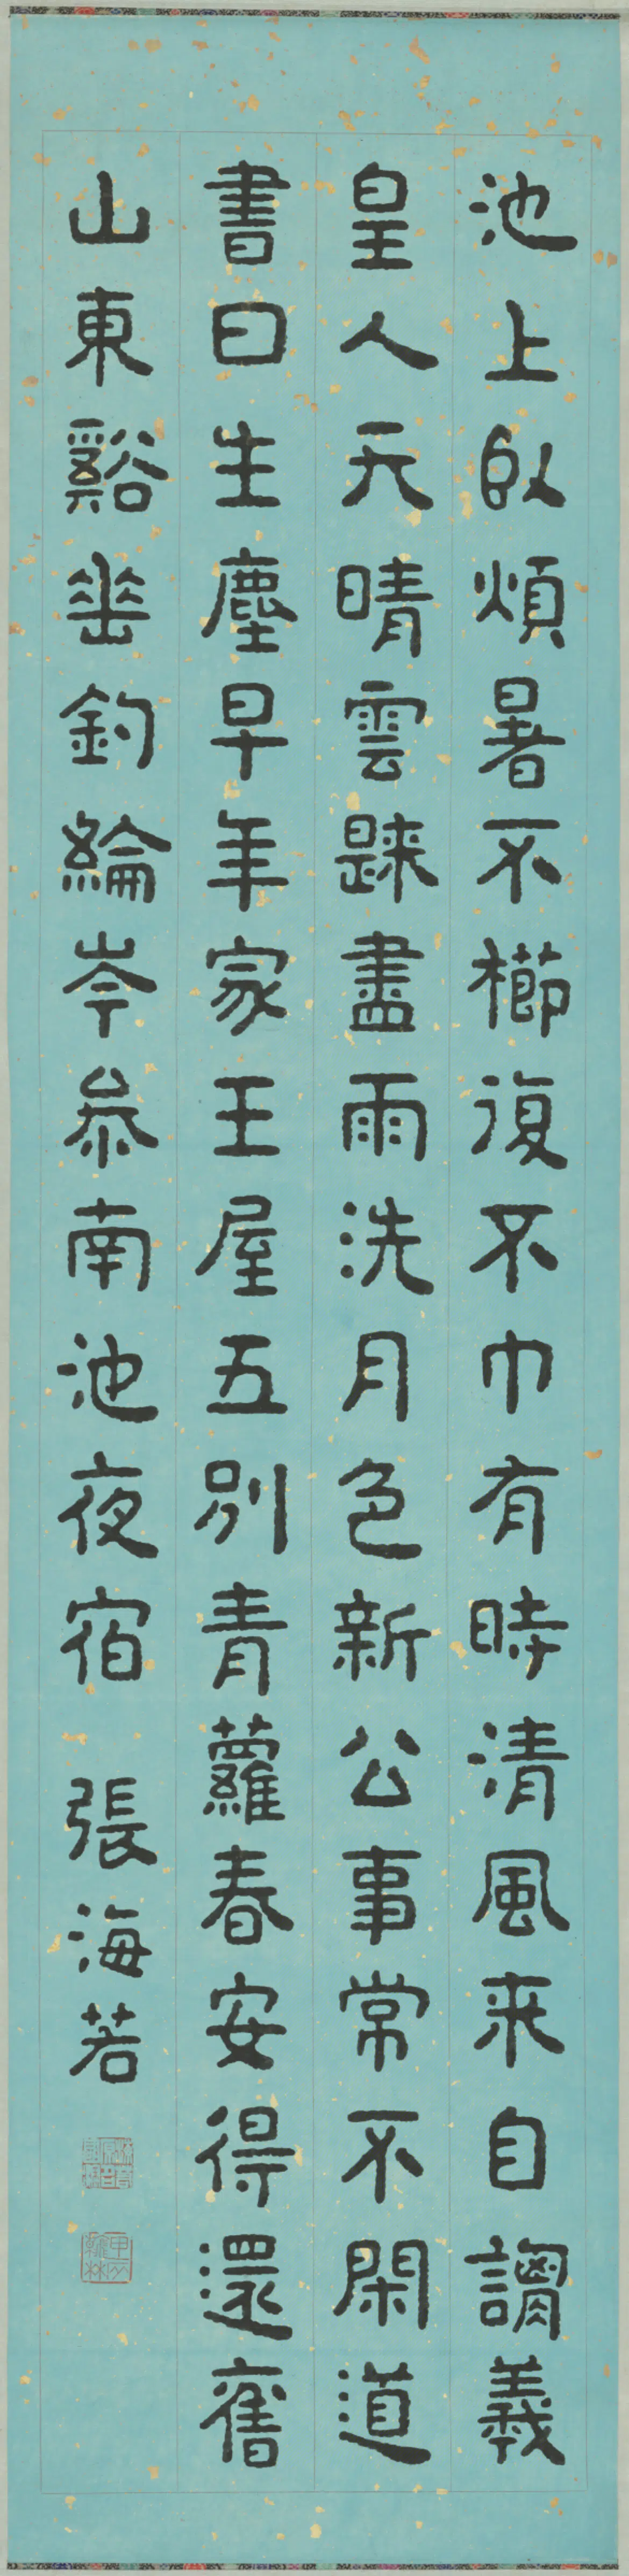 池上卧煩暑不櫛復不巾有時清風來自謂羲
皇人天晴雲歸盡雨洗月色新公事常不閑道
書日生塵早年家王屋五別青蘿春安得還舊
山東谿垂釣綸岑參南池夜宿 張海若